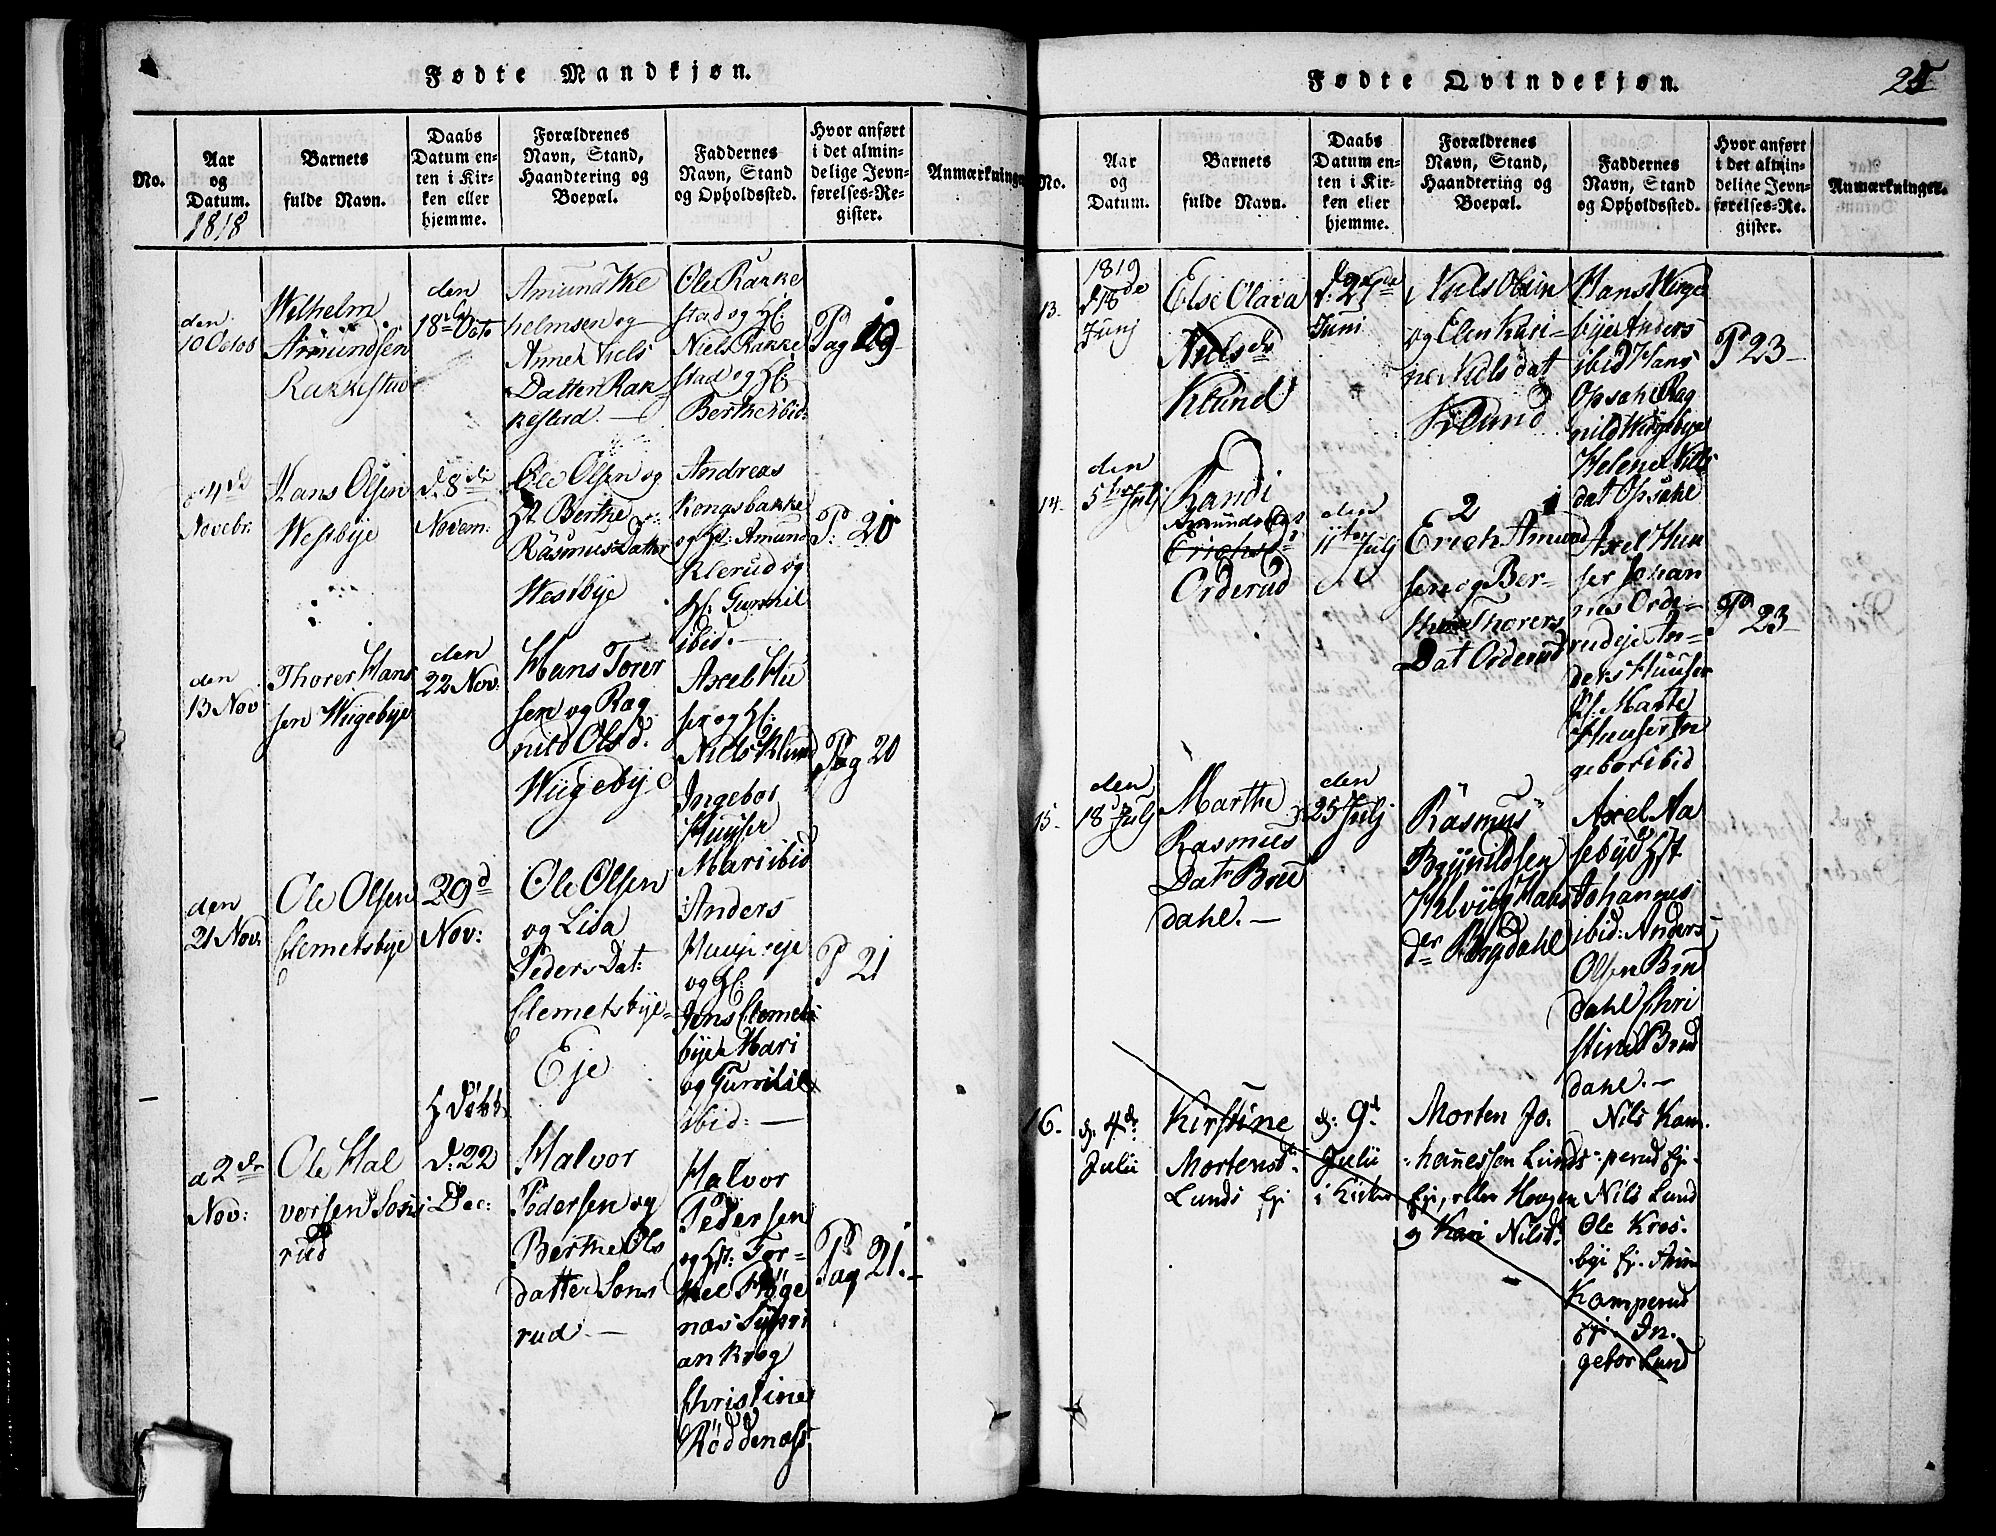 Fødte Mandkjøn.
No.
Aar
og
Datum.
1818
Barnets
fulde Navn.
Daabs
Datum en-
ten i Kir-
ken eller
hjemme.
Forældrenes
Navn, Stand,
Haandtering og
Boepæl.
Faddernes
Navn, Stand
og Opholdssted.
Hvor anført
i det almin-
delige Jevn-
førelses-Re-
gister.
Anmærkninger
den
10 Octob
Wilhelm
Amundsen
Rakkestad
den
18de Octo
Amund Wil
helmsen og
Anne Niels
Datter Rak-
kestad. —
Ole Rakke
stad og H:
Niels Rakke
stad og H:
Berthe ibid:
Pag 19
d 4de
Novebr:
Hans Olsen
Westbye
d. 8de
Novem:
Ole Olsen og
H: Berthe
Rasmus Datter
Westbye
Andreas
Kongsbakke
og H: Amund
Klerud og
H: Gunnil
ibid. —
P: 20
den
13 Nov
Thorer Hans
sen Wiigebye
den
22 Nov:
Hans Torer
sen og Rag
nild Ols d.
Wiigebye
Axel Hu
ser og H:
Niels Klund
Ingebor
Huuser
Mari ibid
Pag 20
den
21 Nov:
Ole Olsen
Clemetsbye
29d
Nov:
Ole Olsen
og Lisa
Peders Dat:
Clemetsbye-
Eje
Anders
eje
og H:
Jens Clemets
bye Mari
og Gunild
ibid: —
P 21
d 2de
Nov:
Ole Hal
vorsen Sons
rud
H Döbt
d: 22
Dec:
Halvor
Pedersen og
Berthe Ols
datter Sons
rud. —
Halvor
Pedersen
og H: Tor-
kel
nas
an Krog
Christine
Röddenæs
Pag 21. —
Fødte Qvindekjøn.
25
No.
Aar
og
Datum.
Barnets
fulde Navn.
Daabs
Datum en-
ten i Kir-
ken eller
hjemme.
Forældrenes
Navn, Stand,
Haandtering og
Boepæl.
Faddernes
Navn, Stand
og Opholdssted.
Hvor anført
i det almin-
delige Jevn-
førelses-Re-
gister.
Anmærkninger.
13.
1819
d 18de
Junj
Else Olava
Niels dr
Klund
d: 27de
Juni
Niels Olsen
og Elen Kari-
ne Nids dat
Klund
Hans Wige
bye Anders
ibid Hans
Opsahl Rag
nild Wigebye
Helene Nills
dat Opsahl
P 23 —
14.
den
5te Julj
Randi
Amunds
Erichsd:
Orderud
den
11te Julj
2 1
Erich Amund
sen og Ber-
the Thorers
Dat Orderud
Axel Huu
ser Johan
nes Orde-
rudeje An-
ders Huuser
H: Marte
Huuser In
gebor ibid
P 23 —
15.
den
18 Julj
Marthe
Rasmus
Datr Brü
dahl. —
den
25 Julj
Rasmus
Brynildsen
Helvig Hans
dr Brydahl
Axel Aa
sebye Hst
Johannes
ibid: Anders
Olsen Brü
dahl Chri
stine Brü
dahl. —
16.
d. 4de
Julii
Kirstine
Mortensd.
Lunds Ej
d. 9d
Julii
i Kirken
Morten Jo.
hanessen Lunds
Ej, eller Haugen
og Kari Nilsd.
Nils Kam.
perud Ej.
Nils Lund
Ole Kros.
bye Ej. Ane
Kamperud
Ej. In.
gebor Lund